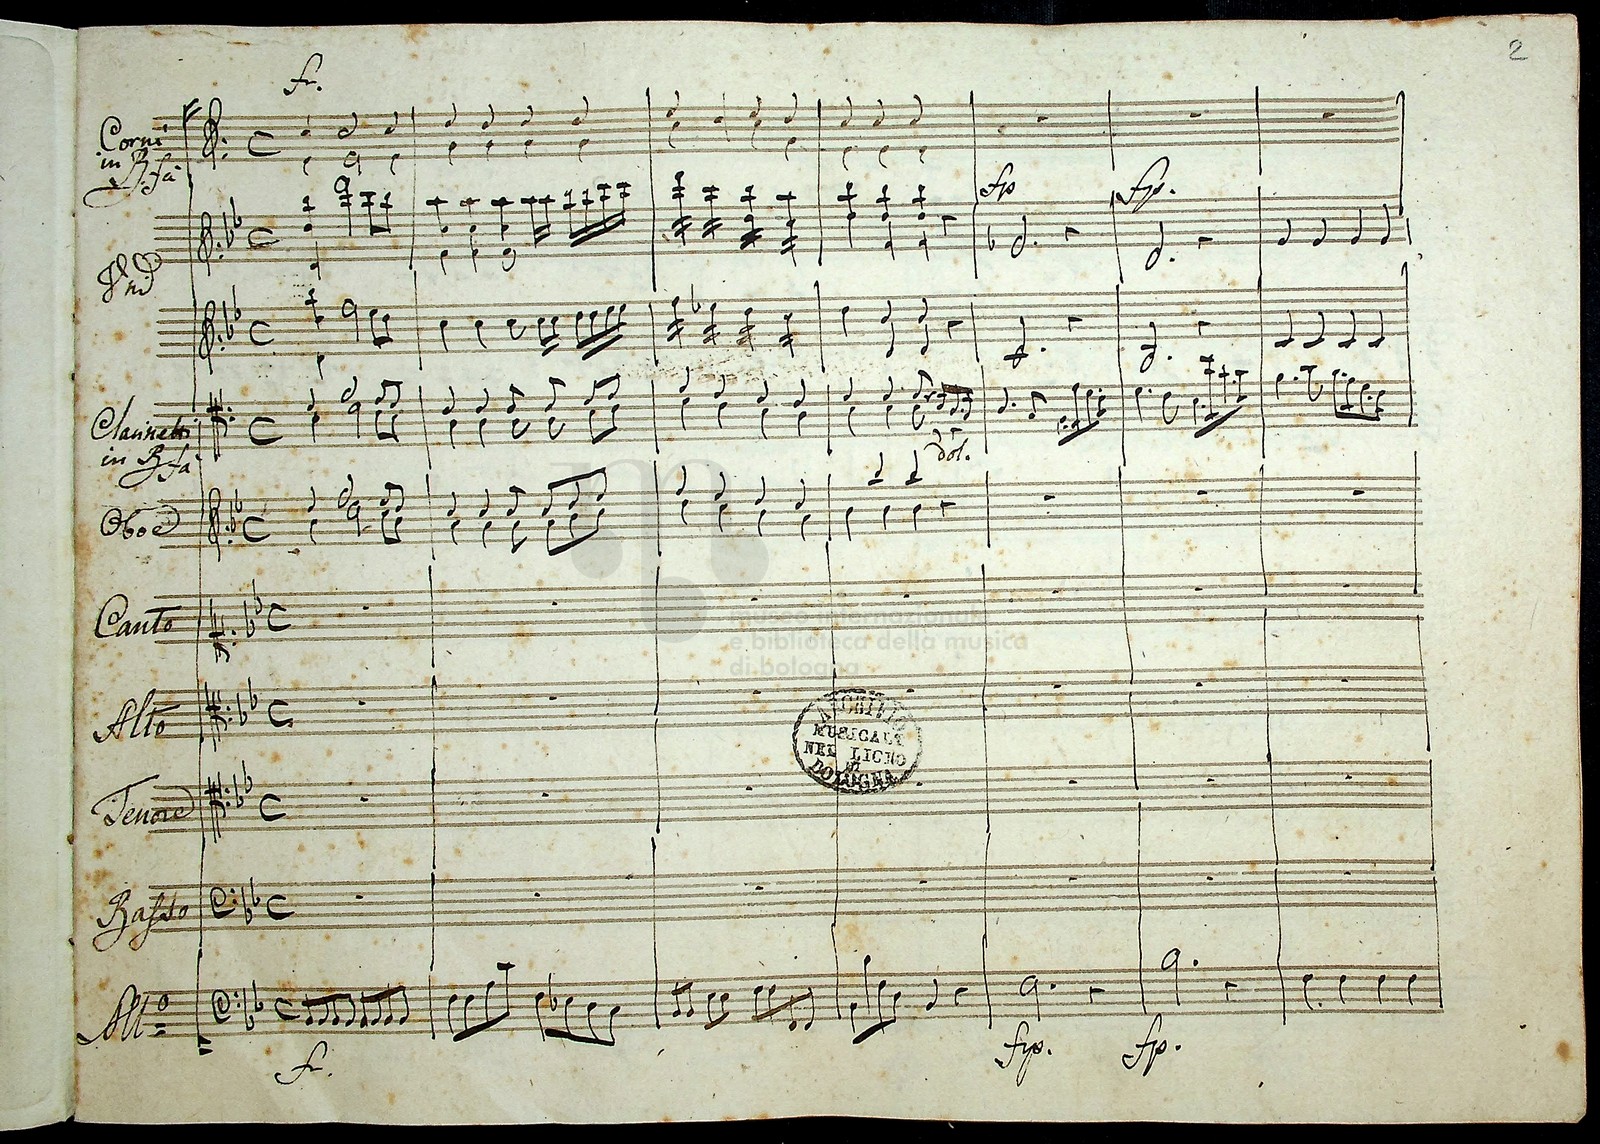 2
fr.
Corni
in B. fà
fp
fp.
Vni
Clarinetti
in B fà
dol.
Oboe
museo internazionale
e biblioteca della musica
di bologna
Canto
Alto
ARCHIVIO
MUSICALE
NEL LICEO
DI
BOLOGNA
Tenore
Basso
All:o
fr.
fp.
fp.